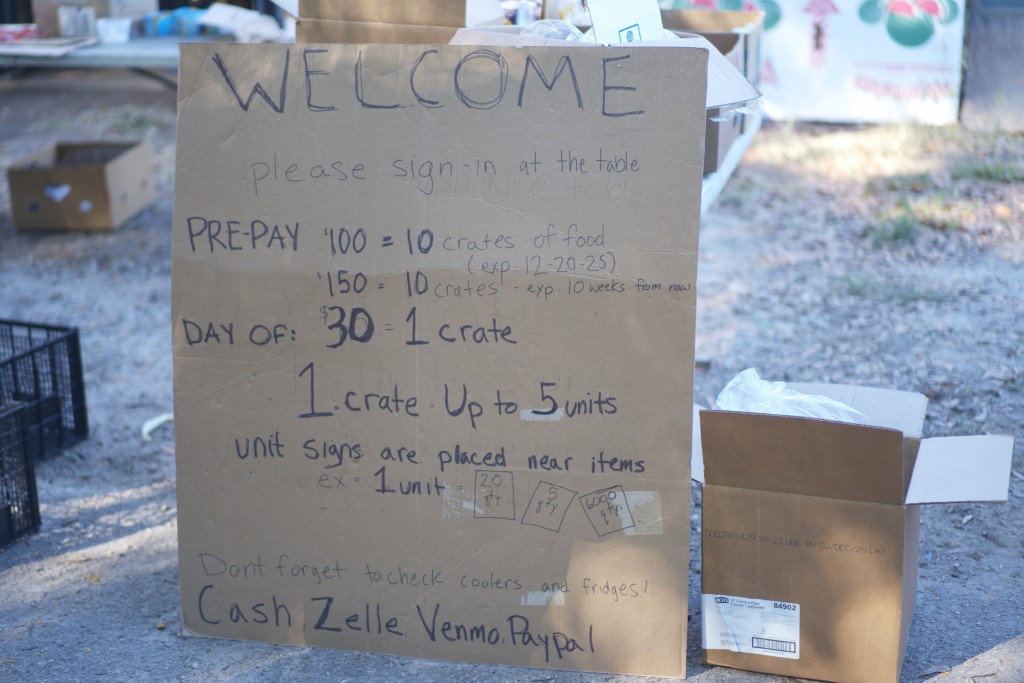 WELCOME
please sign-in at the table
PRE-PAY $100 = 10 crates of food
(exp 12-20-25)
$150 = 10 crates - exp. 10 weeks from now
DAY OF: $30 = 1 crate
1 crate. Up to 5 units
unit signs are placed near items
ex - 1 unit = 20 qty. 5 qty 6000 qty.
Dont forget to check coolers and fridges!
Cash. Zelle. Venmo. Paypal
USE BY 02/DEC/25
84902